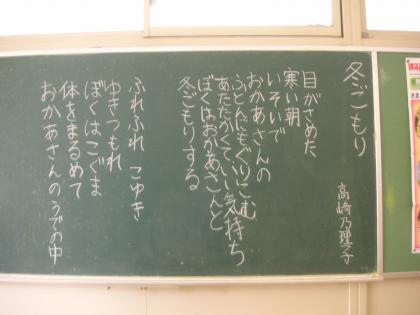 冬ごもり
高崎乃理子
目がさめた
寒い朝
いそいで
おかあさんの
ふとんにもぐりこむ
あたたかくていい気持ち
ぼくはおかあさんと
冬ごもりする
ふれふれ こゆき
ゆきつもれ
ぼくはこぐま
体をまるめて
おかあさんのうでの中